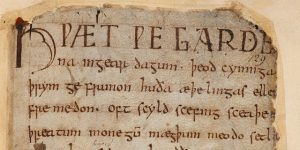 HǷÆT ǷE GARDE
129
na ingear dagum. þeod cyninga
þrym ge frunon huða æþelingas elle
fremedon. oft scyld scefing sceaþe
þreatum monegū mægþum meodo setl